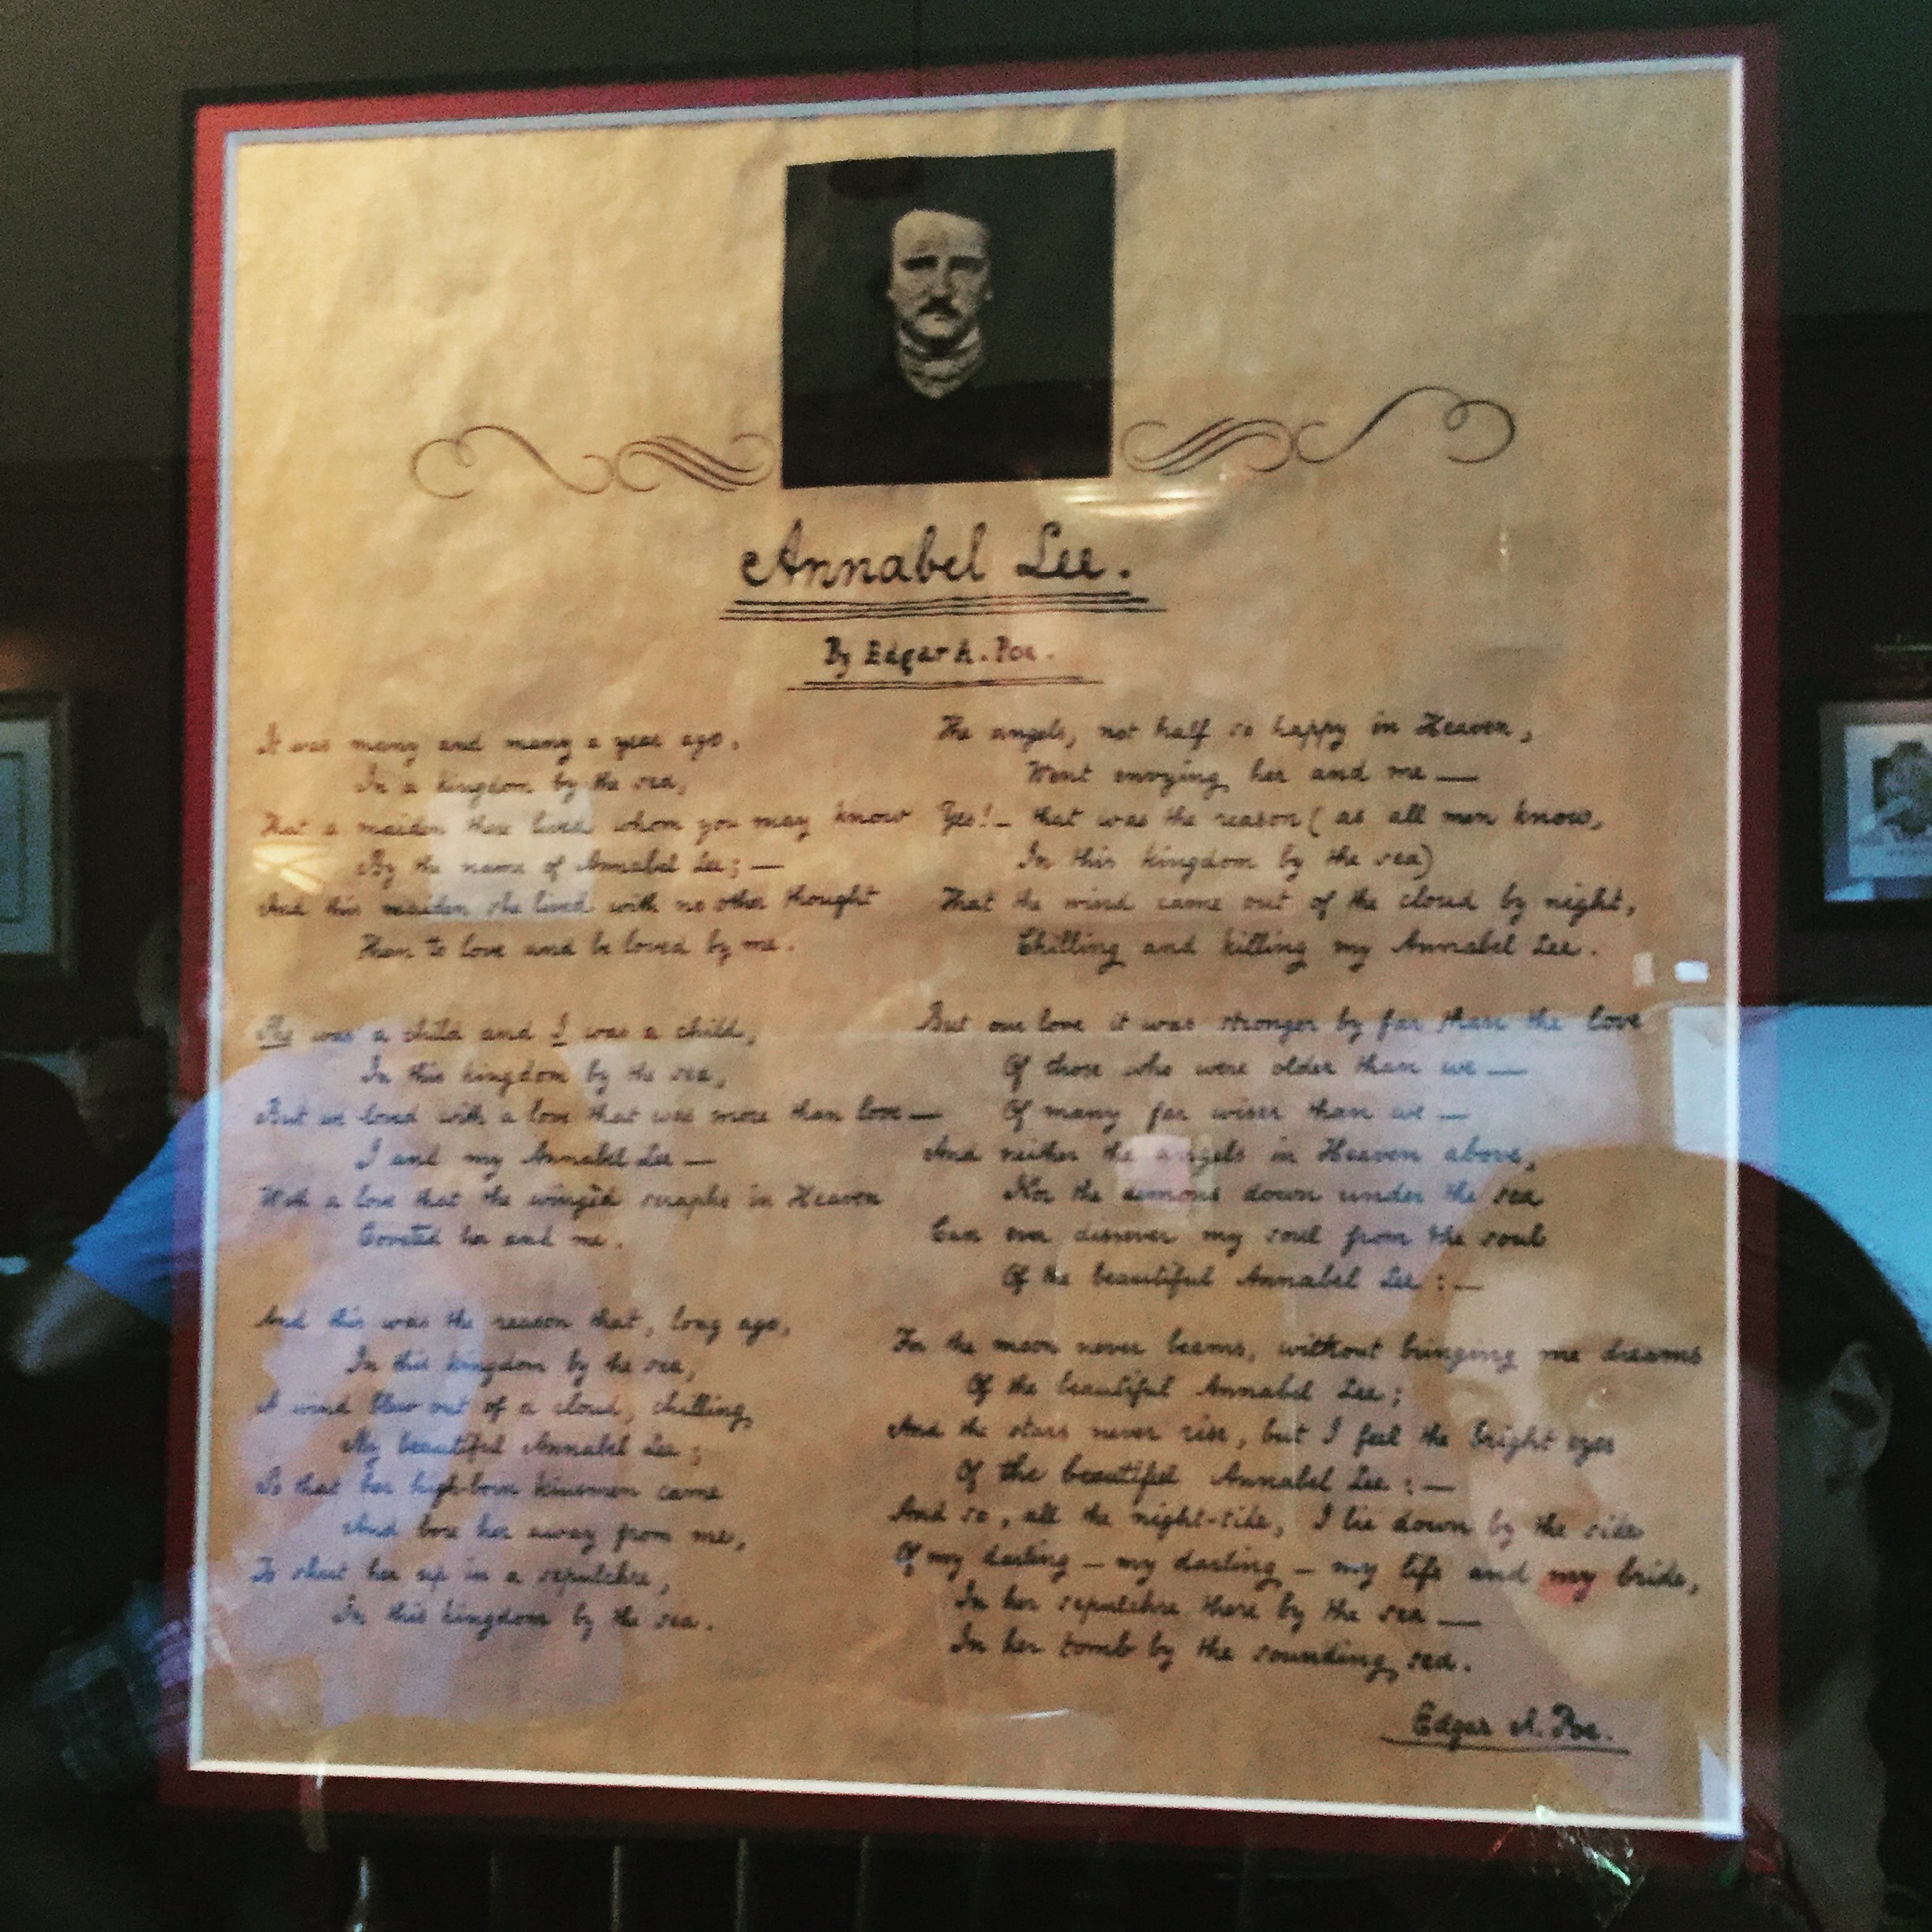 Annabel Lee.
By Edgar A. Poe.
It was many and many a year ago,
In a kingdom by the sea,
That a maiden there lived whom you may know
By the name of Annabel Lee; —
And this maiden she lived with no other thought
Than to love and be loved by me.
She was a child and I was a child,
In this kingdom by the sea,
But we loved with a love that was more than love —
I and my Annabel Lee —
With a love that the wingéd seraphs in Heaven
Coveted her and me.
And this was the reason that, long ago,
In this kingdom by the sea,
A wind blew out of a cloud, chilling
My beautiful Annabel Lee;
So that her high-born kinsmen came
And bore her away from me,
To shut her up in a sepulchre,
In this kingdom by the sea.
The angels, not half so happy in Heaven,
Went envying her and me —
Yes! — that was the reason (as all men know,
In this kingdom by the sea)
That the wind came out of the cloud by night,
Chilling and killing my Annabel Lee.
But our love it was stronger by far than the love
Of those who were older than we —
Of many far wiser than we —
And neither the angels in Heaven above,
Nor the demons down under the sea
Can ever dissever my soul from the soul
Of the beautiful Annabel Lee: —
For the moon never beams, without bringing me dreams
Of the beautiful Annabel Lee;
And the stars never rise, but I feel the bright eyes
Of the beautiful Annabel Lee: —
And so, all the night-tide, I lie down by the side
Of my darling — my darling — my life and my bride,
In her sepulchre there by the sea —
In her tomb by the sounding sea.
Edgar A. Poe.